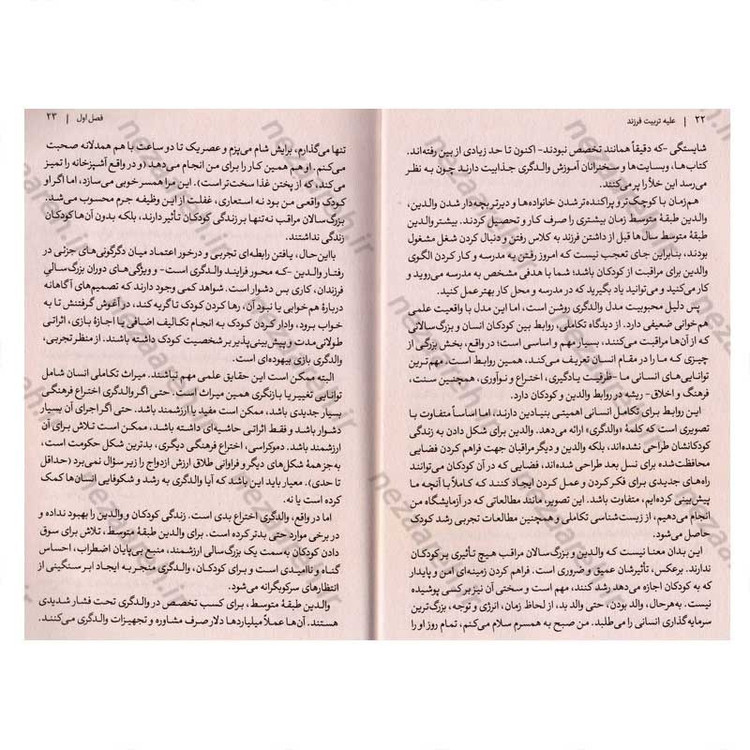 ۲۲ | علیه تربیت فرزند
شایستگی -که دقیقاً همانند تخصص نبودند- اکنون تا حد زیادی از بین رفته‌اند.
کتاب‌ها، وبسایت‌ها و سخنرانان آموزش والدگری جذابیت دارند چون به نظر
می‌رسد این خلأ را پر می‌کنند.
هم‌زمان با کوچک‌تر و پراکنده‌تر شدن خانواده‌ها و دیرتر بچه‌دار شدن والدین،
والدین طبقهٔ متوسط زمان بیشتری را صرف کار و تحصیل کردند. بیشتر والدین
طبقهٔ متوسط سال‌ها قبل از داشتن فرزند به کلاس رفتن و دنبال کردن شغل مشغول
بودند، بنابراین جای تعجب نیست که امروز رفتن به مدرسه و کار کردن الگوی
والدین برای مراقبت از کودکان باشد: شما با هدفی مشخص به مدرسه می‌روید و
کار می‌کنید و می‌توانید یاد بگیرید که در مدرسه و محل کار بهتر عمل کنید.
پس دلیل محبوبیت مدل والدگری روشن است، اما این مدل با واقعیت علمی
هم‌خوانی ضعیفی دارد. از دیدگاه تکاملی، روابط بین کودکان انسان و بزرگ‌سالانی
که از آن‌ها مراقبت می‌کنند، بسیار مهم و اساسی است؛ در واقع، بخش بزرگی از
چیزی که ما را در مقام انسان تعریف می‌کند، همین روابط است. مهم‌ترین
توانایی‌های انسانی ما -ظرفیت یادگیری، اختراع و نوآوری، همچنین سنت،
فرهنگ و اخلاق- ریشه در روابط والدین و کودکان دارد.
این روابط برای تکامل انسانی اهمیتی بنیادین دارند، اما اساساً متفاوت با
تصویری است که کلمهٔ «والدگری» ارائه می‌دهد. والدین برای شکل دادن به زندگی
کودکانشان طراحی نشده‌اند، بلکه والدین و دیگر مراقبان جهت فراهم کردن فضایی
محافظت‌شده برای نسل بعد طراحی شده‌اند، فضایی که در آن کودکان می‌توانند
راه‌های جدیدی برای فکر کردن و عمل کردن ایجاد کنند که کاملاً با آنچه ما
پیش‌بینی کرده‌ایم، متفاوت باشد. این تصویر، مانند مطالعاتی که در آزمایشگاه من
انجام می‌دهیم، از زیست‌شناسی تکاملی و همچنین مطالعات تجربی رشد کودک
حاصل می‌شود.
این بدان معنا نیست که والدین و بزرگ‌سالان مراقب هیچ تأثیری بر کودکان
ندارند. برعکس، تأثیرشان عمیق و ضروری است. فراهم کردن زمینه‌ای امن و پایدار
که به کودکان اجازه می‌دهد رشد کنند، مهم است و سختی آن نیز بر کسی پوشیده
نیست. به‌هرحال، والد بودن، حتی والد بد، از لحاظ زمان، انرژی و توجه، بزرگ‌ترین
سرمایه‌گذاری انسانی را می‌طلبد. من صبح به همسرم سلام می‌کنم، تمام روز او را
فصل اول | ۲۳
تنها می‌گذارم، برایش شام می‌پزم و عصر یک تا دو ساعت با هم همدلانه صحبت
می‌کنم. او هم همین کار را برای من انجام می‌دهد (و در واقع آشپزخانه را تمیز
می‌کند، که از پختن غذا سخت‌تر است). این مرا همسر خوبی می‌سازد، اما اگر او
کودک واقعی من بود نه استعاری، غفلت از این وظیفه جرم محسوب می‌شد.
بزرگ‌سالان مراقب نه‌تنها بر زندگی کودکان تأثیر دارند، بلکه بدون آن‌ها کودکان
زندگی نداشتند.
بااین‌حال، یافتن رابطه‌ای تجربی و درخور اعتماد میان دگرگونی‌های جزئی در
رفتار والدین -که محور فرایند والدگری است- و ویژگی‌های دوران بزرگ‌سالیِ
فرزندان، کاری بس دشوار است. شواهد کمی وجود دارند که تصمیم‌های آگاهانه
دربارهٔ هم‌خوابی یا نبود آن، رها کردن کودک تا گریه کند، در آغوش گرفتنش تا به
خواب برود، وادار کردن کودک به انجام تکالیف اضافی یا اجازهٔ بازی، اثراتی
طولانی‌مدت و پیش‌بینی‌پذیر بر شخصیت کودک داشته باشند. از منظر تجربی،
والدگری بازی بیهوده‌ای است.
البته ممکن است این حقایق علمی مهم نباشند. میراث تکاملی انسان شامل
توانایی تغییر یا بازنگری همین میراث است. حتی اگر والدگری اختراع فرهنگی
بسیار جدیدی باشد، ممکن است مفید یا ارزشمند باشد. حتی اگر اجرای آن بسیار
دشوار باشد و فقط اثراتی حاشیه‌ای داشته باشد، ممکن است تلاش برای آن
ارزشمند باشد. دموکراسی، اختراع فرهنگی دیگری، بدترین شکل حکومت است،
به‌جز همهٔ شکل‌های دیگر و فراوانی طلاق ارزش ازدواج را زیر سؤال نمی‌برد (حداقل
تا حدی). معیار باید این باشد که آیا والدگری به رشد و شکوفایی انسان‌ها کمک
کرده است یا نه.
اما در واقع، والدگری اختراع بدی است. زندگی کودکان و والدین را بهبود نداده و
در برخی موارد حتی بدتر کرده است. برای والدین طبقهٔ متوسط، تلاش برای سوق
دادن کودکان به‌سمت یک بزرگ‌سالی ارزشمند، منبع بی‌پایان اضطراب، احساس
گناه و ناامیدی است و برای کودکان، والدگری منجر به ایجاد ابر سنگینی از
انتظارهای سرکوبگرانه می‌شود.
والدین طبقهٔ متوسط، برای کسب تخصص در والدگری تحت فشار شدیدی
هستند. آن‌ها عملاً میلیاردها دلار صرف مشاوره و تجهیزات والدگری می‌کنند.